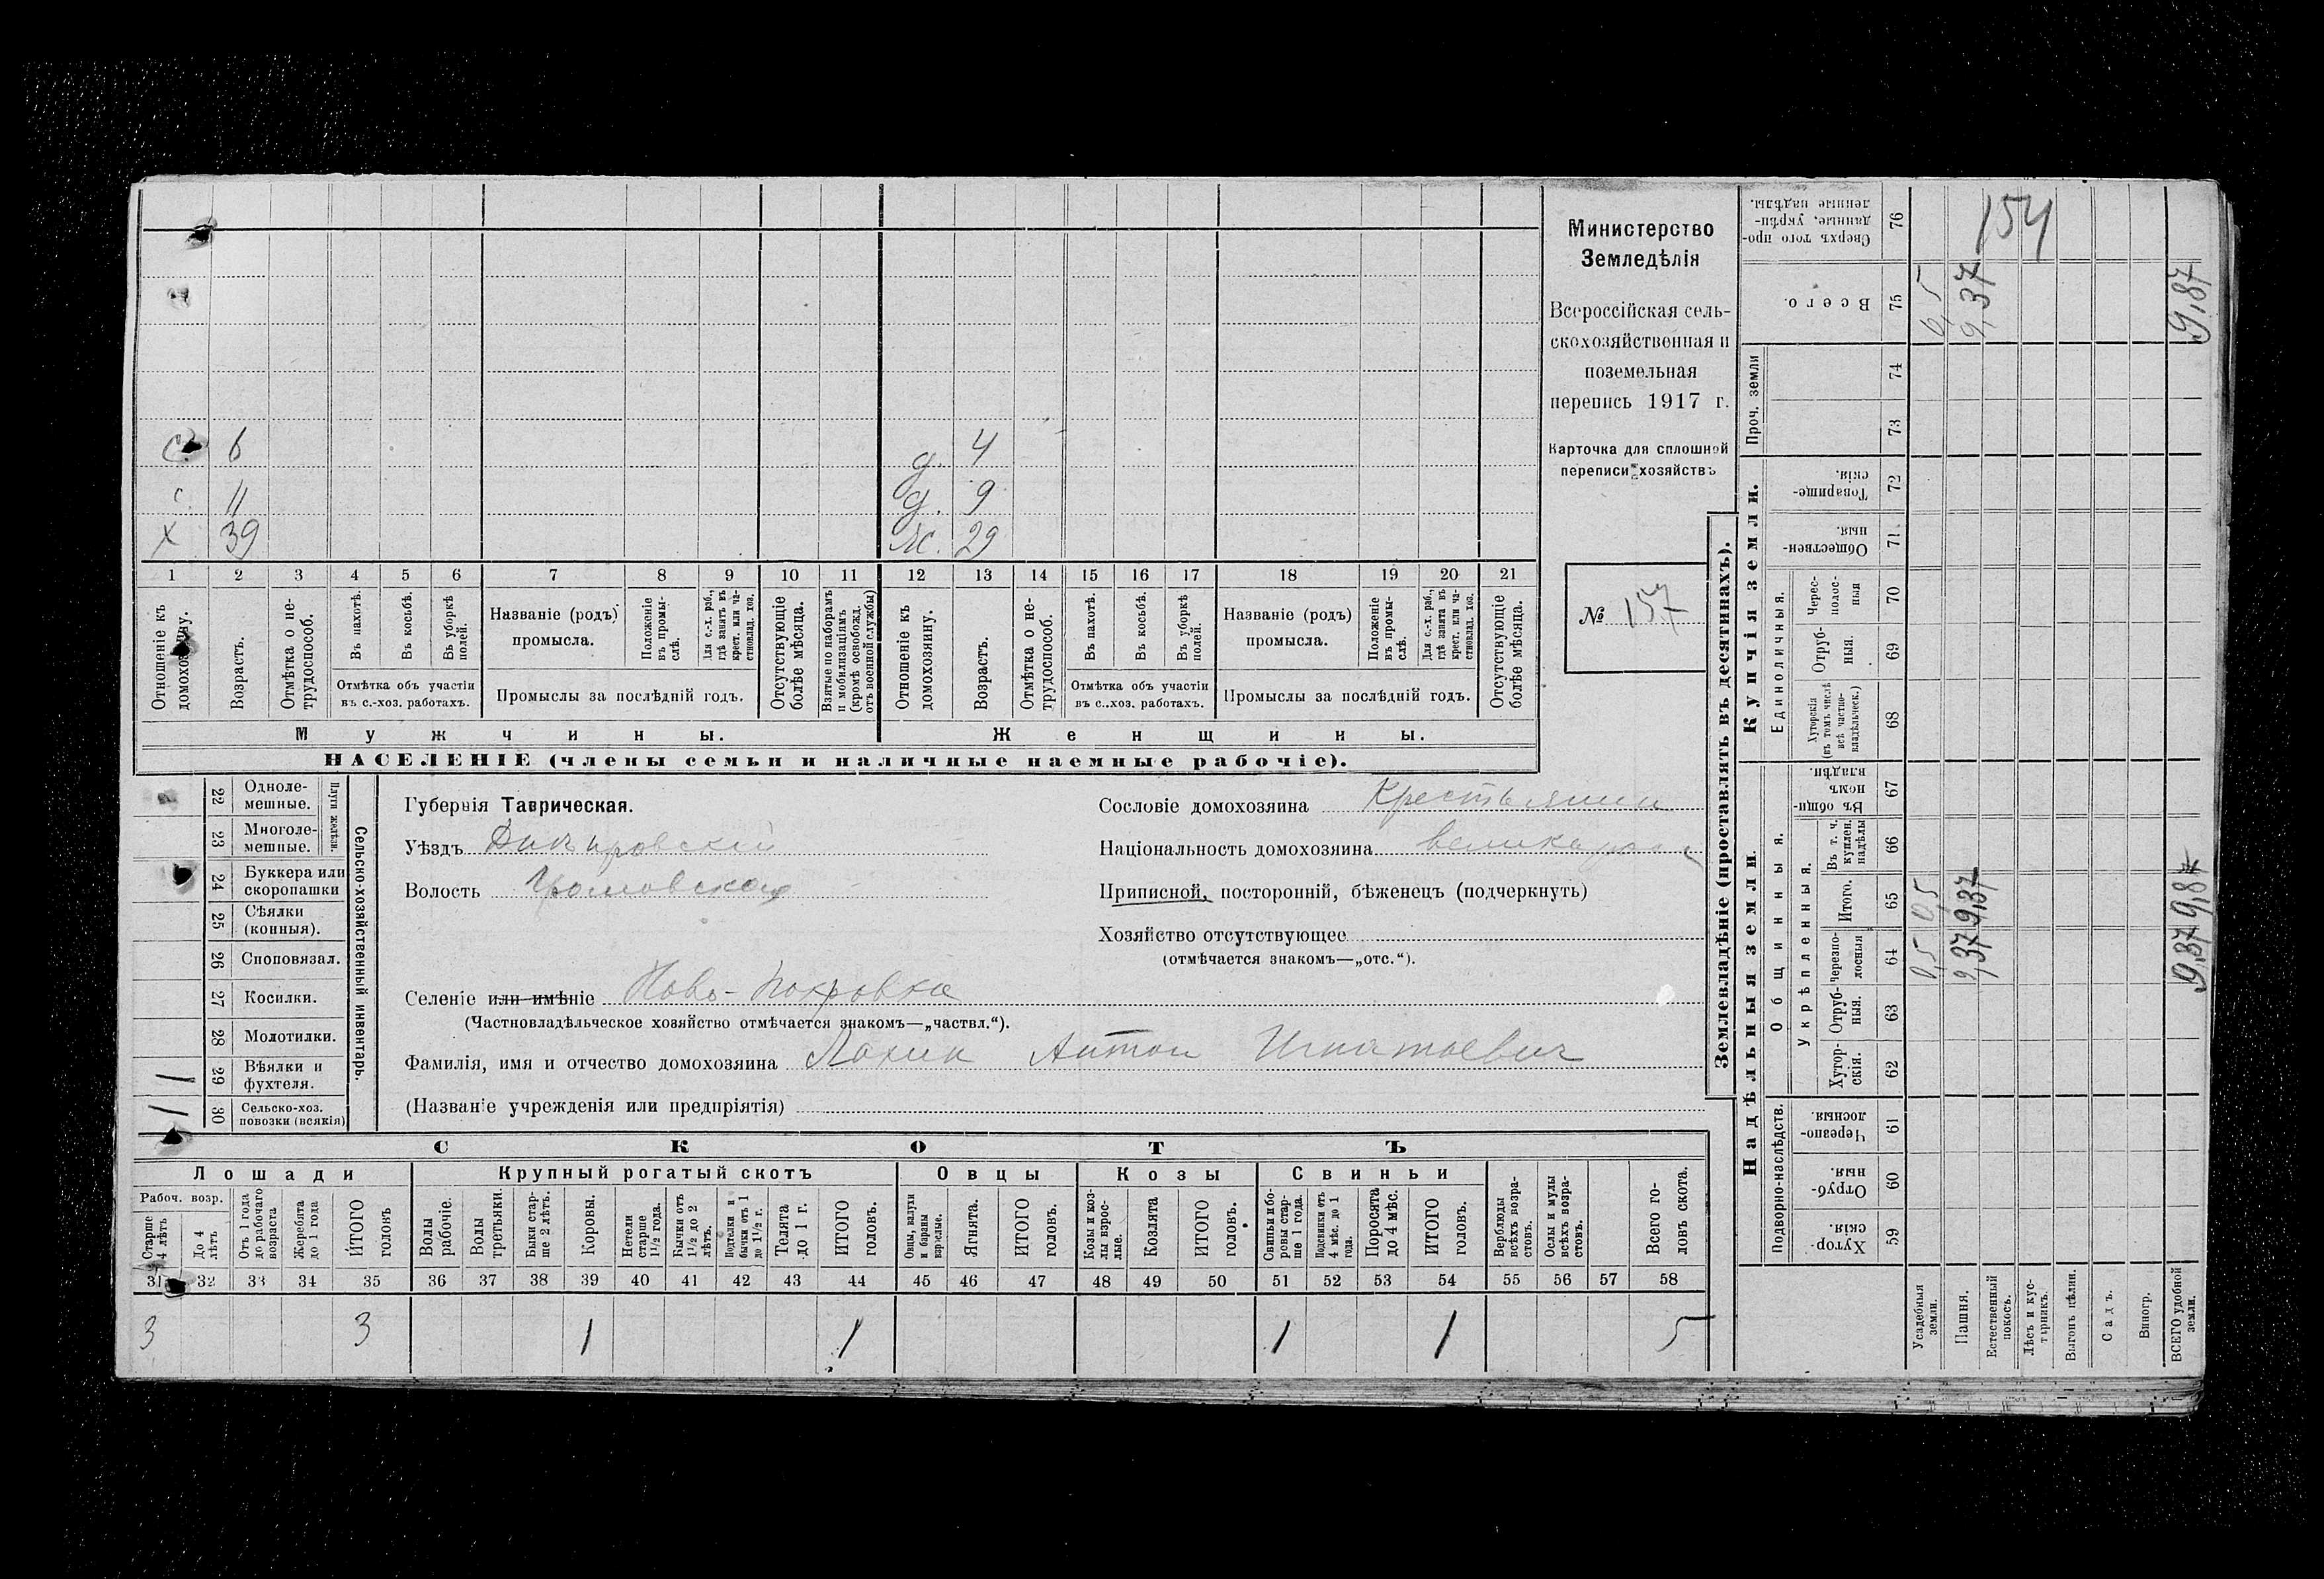 Министерство
Земледѣлія
Всероссійская сель-
скохозяйственная и
поземельная
перепись 1917 г.
Карточка для сплошной
переписи хозяйствъ
№ 157
154
с. 6
с. 11
х 39
д. 4
д. 9
ж. 29
1 2 3 4 5 6 7 8 9 10 11 12 13 14 15 16 17 18 19 20 21
Отношеніе къ домохозяину.
Возрастъ.
Отмѣтка о не-трудоспособ.
Въ пахотѣ.
Въ косьбѣ.
Въ уборкѣ полей.
Отмѣтка объ участіи
въ с.-хоз. работахъ.
Названіе (родъ)
промысла.
Положеніе въ промы-слѣ.
Для с.-х. раб., гдѣ занятъ въ крест. или ча-стновлад. хоз.
Промыслы за послѣдній годъ.
Отсутствующіе болѣе мѣсяца.
Взятые по наборамъ и мобилизаціямъ (кромѣ освобожд. отъ военной службы)
Отношеніе къ домохозяину.
Возрастъ.
Отмѣтка о не-трудоспособ.
Въ пахотѣ.
Въ косьбѣ.
Въ уборкѣ полей.
Отмѣтка объ участіи
въ с..хоз. работахъ.
Названіе (родъ)
промысла.
Положеніе въ промы-слѣ.
Для с.-х. раб., гдѣ занятъ въ крест. или ча-стновлад. хоз.
Промыслы за послѣдній годъ.
Отсутствующіе болѣе мѣсяца.
Мужчины.
Женщины.
НАСЕЛЕНІЕ (члены семьи и наличные наемные рабочіе).
22 Одноле-мешные.
23 Многоле-мешные.
Плуги желѣзн.
24 Буккера или скоропашки
25 Сѣялки (конныя).
26 Сноповязал.
27 Косилки.
28 Молотилки.
1 29 Вѣялки и фухтеля.
1 30 Сельско-хоз. повозки (всякія)
Сельско-хозяйственный инвентарь.
Губернія Таврическая.
Уѣздъ Днѣпровскій
Волость Громовская
Сословіе домохозяина Крестьянин
Національность домохозяина
Приписной, посторонній, бѣженецъ (подчеркнуть)
Хозяйство отсутствующее
(отмѣчается знакомъ—„отс.“).
Селеніе или имѣніе Ново-Покровка
(Частновладѣльческое хозяйство отмѣчается знакомъ—„частвл.“).
Фамилія, имя и отчество домохозяина Лахин Антон Игнатьевич
(Названіе учрежденія или предпріятія)
СКОТЪ
Лошади
Крупный рогатый скотъ
Овцы
Козы
Свиньи
Рабоч. возр.
Старше 4 лѣтъ
До 4 лѣтъ
Отъ 1 года до рабочаго возраста
Жеребята до 1 года
ИТОГО головъ
Волы рабочіе.
Волы третьяки.
Быки стар-ше 2 лѣтъ.
Коровы.
Нетели старше 1½ года.
Бычки отъ 1½ до 2 лѣтъ.
Подтелки и бычки отъ 1 до 1½ г.
Телята до 1 г.
ИТОГО головъ.
Овцы, валухи и бараны взрослые.
Ягнята.
ИТОГО головъ.
Козы и коз-лы взрос-лые.
Козлята
ИТОГО головъ.
Свиньи и бо-ровы стар-ше 1 года.
Подсвинки отъ 4 мѣс. до 1 года.
Поросята до 4 мѣс.
ИТОГО головъ.
Верблюды всѣхъ возра-стовъ.
Ослы и мулы всѣхъ возра-стовъ.
Всего го-ловъ скота.
31 32 33 34 35 36 37 38 39 40 41 42 43 44 45 46 47 48 49 50 51 52 53 54 55 56 57 58
3 3 1 1 1 1 5
Землевладѣніе (проставлять въ десятинахъ).
Надѣльныя земли.
Купчія земли.
Проч. земли
Подворно-наслѣдств.
Общинныя.
Укрѣпленныя.
Единоличныя.
Хутор-скія. 59
Отруб-ныя. 60
Черезпо-лосныя 61
Хутор-скія. 62
Отруб-ныя. 63
Черезпо-лосныя 64
Итого. 65
Въ т. ч. куплен. надѣлы 66
Въ общи-номъ владѣн. 67
Хуторскія (въ томъ числѣ всѣ частно-владѣльческ.) 68
Отруб-ныя. 69
Черес-полос-ныя 70
Обществен-ныя 71
Товарище-скія. 72
73
74
Всего. 75
Сверхъ того про-данные, укрѣп-ленные надѣлы. 76
Усадебныя земли. 0,5 0,5 0,5
Пашня. 9,37 9,37 9,37
Естественный покосъ.
Лѣсъ и кус-тарникъ.
Выгонъ цѣлин.
Садъ.
Виногр.
ВСЕГО удобной земли. 9,87 9,87 9,87